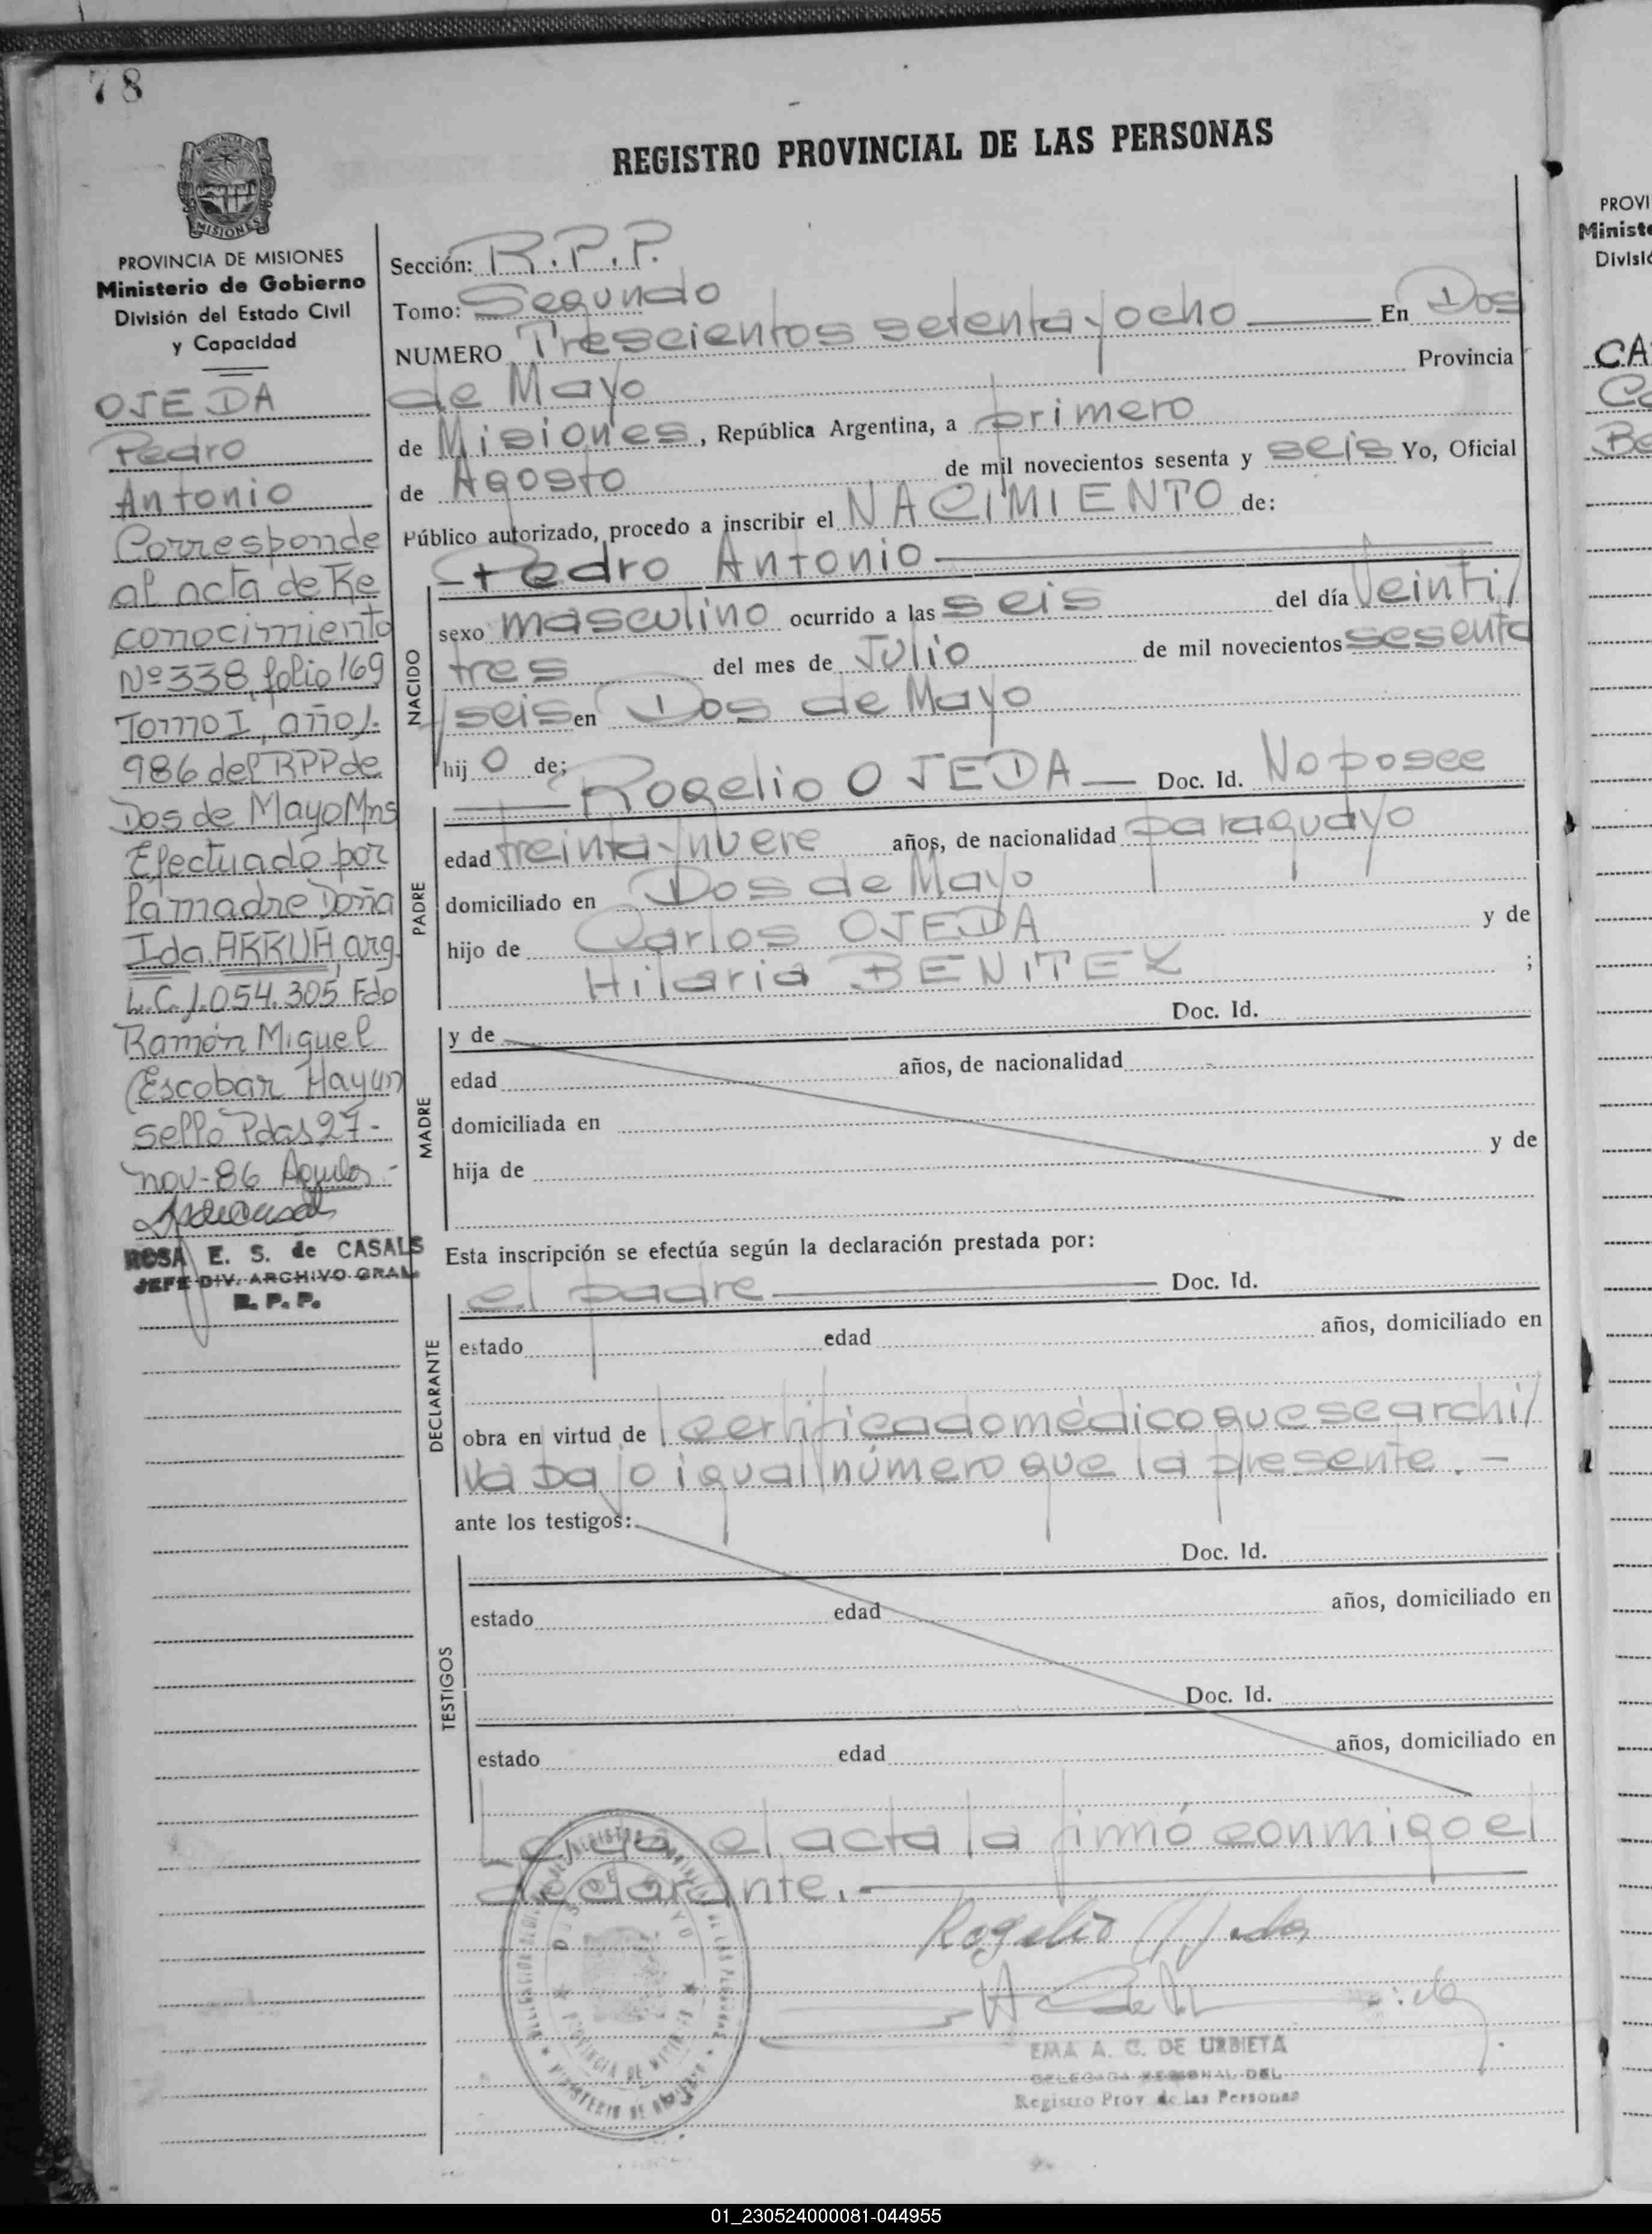 78
REGISTRO PROVINCIAL DE LAS PERSONAS
MISIONES
PROVINCIA DE MISIONES
Ministerio de Gobierno
División del Estado Civil
y Capacidad
OJEDA
Pedro
Antonio
Corresponde
al acta de Re
conocimiento
Nº 338, folio 169
Tomo I, año 1.
986 del RPP de
Dos de Mayo Mns
Efectuado por
la madre Doña
Ida ARRUA, arg.
L.C. 1.054.305 Fdo
Ramón Miguel
Escobar Hayun
sello Pdas 27-
nov-86
ROSA E. S. de CASALS
JEFE DIV. ARCHIVO GRAL
R. P. P.
Sección: R.P.P.
Tomo: Segundo
NUMERO Trescientos setenta y ocho En Dos
de Mayo Provincia
de Misiones, República Argentina, a primero
de Agosto de mil novecientos sesenta y seis Yo, Oficial
Público autorizado, procedo a inscribir el NACIMIENTO de:
Pedro Antonio
NACIDO
sexo masculino ocurrido a las seis del día Veinti/
tres del mes de Julio de mil novecientos sesenta
y seis en Dos de Mayo
hij o de;
Rogelio OJEDA Doc. Id. No posee
PADRE
edad treinta y nueve años, de nacionalidad paraguayo
domiciliado en Dos de Mayo
hijo de Carlos OJEDA y de
Hilaria BENITEZ ;
y de Doc. Id.
MADRE
edad años, de nacionalidad
domiciliada en
hija de y de
Esta inscripción se efectúa según la declaración prestada por:
el padre Doc. Id.
DECLARANTE
estado edad años, domiciliado en
obra en virtud de certificado médico que se archi/
va bajo igual número que la presente. -
ante los testigos:
Doc. Id.
TESTIGOS
estado edad años, domiciliado en
Doc. Id.
estado edad años, domiciliado en
Leída el acta la firmó conmigo el
declarante.
Rogelio Ojeda
EMA A. C. DE URBIETA
DELEGADA REGIONAL DEL
Registro Prov. de las Personas
PROVI
Ministe
Divisió
CA
Be
01_230524000081-044955